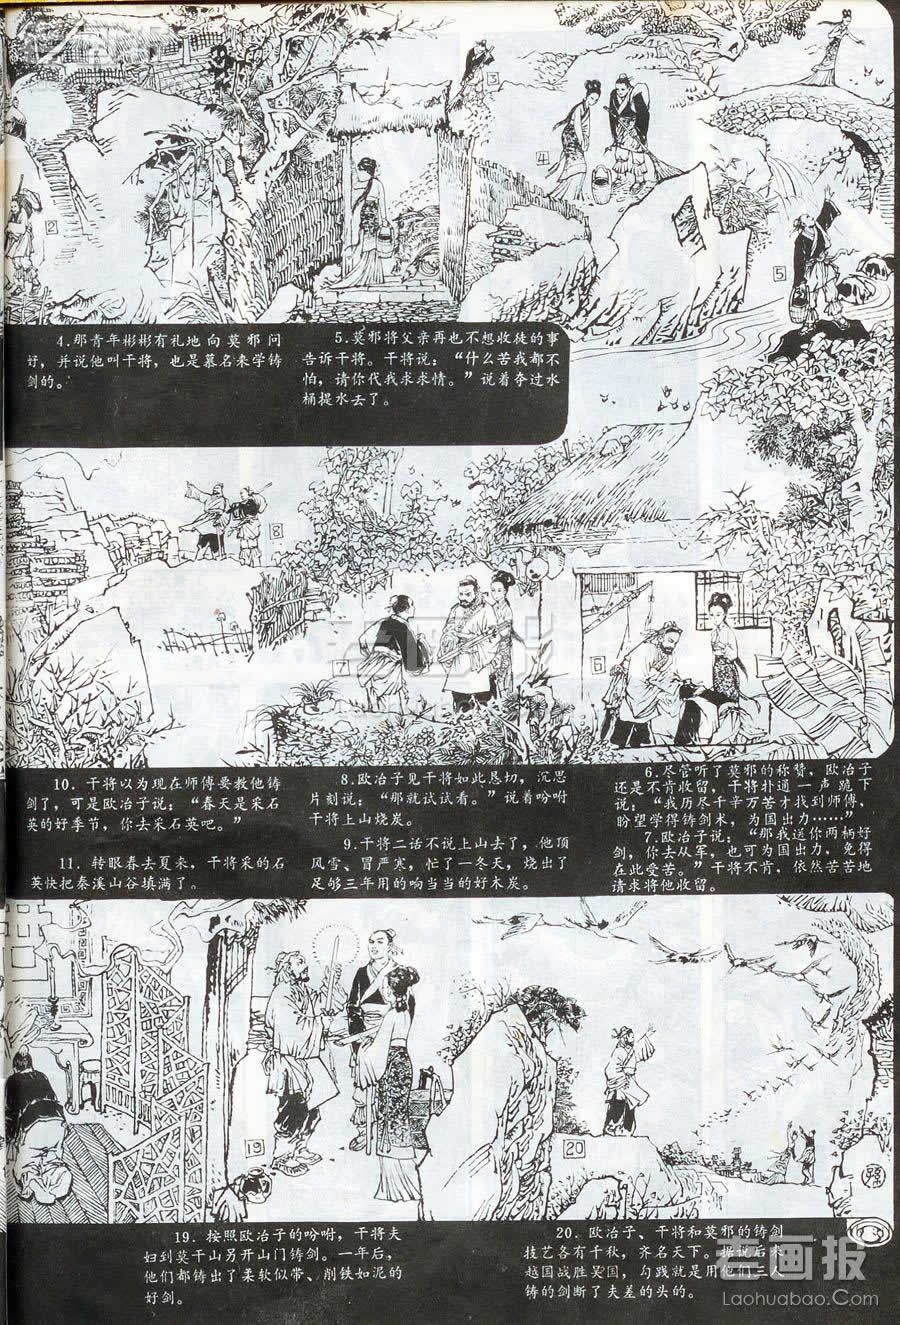 3
4
2
5
4.那青年彬彬有礼地向莫邪问
好，并说他叫干将，也是慕名来学铸
剑的。
5.莫邪将父亲再也不想收徒的事
告诉干将。干将说：“什么苦我都不
怕，请你代我求求情。”说着夺过水
桶提水去了。
8
7
6
10．干将以为现在师傅要教他铸
剑了，可是欧冶子说：“春天是采石
英的好季节，你去采石英吧。”
11．转眼春去夏来，干将采的石
英快把秦溪山谷填满了。
8.欧冶子见干将如此恳切，沉思
片刻说：“那就试试看。”说着吩咐
干将上山烧炭。
9.干将二话不说上山去了，他顶
风雪、冒严寒，忙了一冬天，烧出了
足够三年用的响当当的好木炭。
6.尽管听了莫邪的称赞，欧冶子
还是不肯收留，干将扑通一声跪下
说：“我历尽千辛万苦才找到师傅，
盼望学得铸剑术，为国出力……”
7.欧冶子说：“那我送你两柄好
剑，你去从军，也可为国出力，免得
在此受苦。”干将不肯，依然苦苦地
请求将他收留。
19
20
19．按照欧冶子的吩咐，干将夫
妇到莫干山另开山门铸剑。一年后，
他们都铸出了柔软似带、削铁如泥的
好剑。
20．欧冶子、干将和莫邪的铸剑
技艺各有千秋，齐名天下。据说后来
越国战胜吴国，勾践就是用他们三人
铸的剑断了夫差的头的。
老画报
Laohuabao.Com